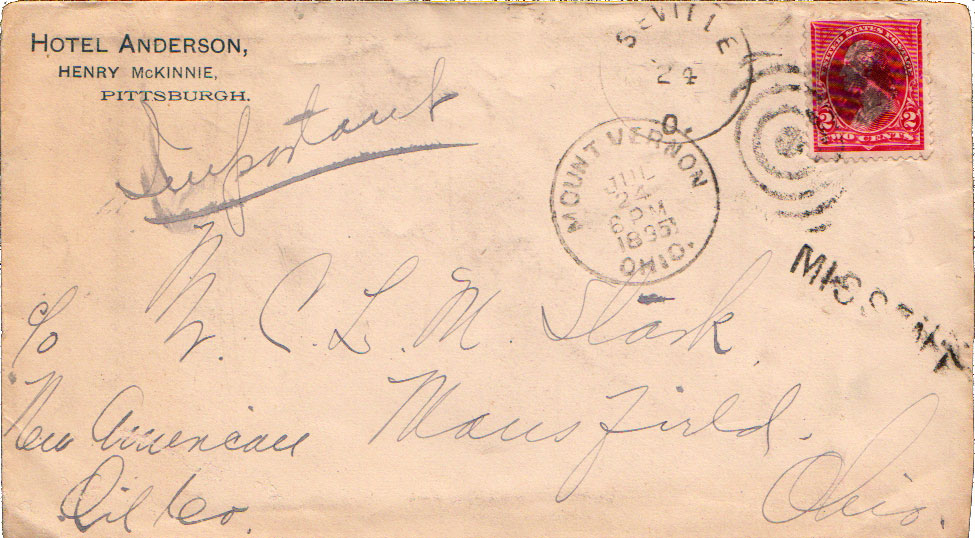 HOTEL ANDERSON,
HENRY McKINNIE,
PITTSBURGH.
Important
SEVILLE
24
O.
UNITED STATES POSTAGE
2 2
TWO CENTS
MOUNT VERNON
JUL
24
6 PM
1895
OHIO.
MISSENT
C. L. M. Stark
c/o
Mansfield.
New American
Oil Co.
Ohio.